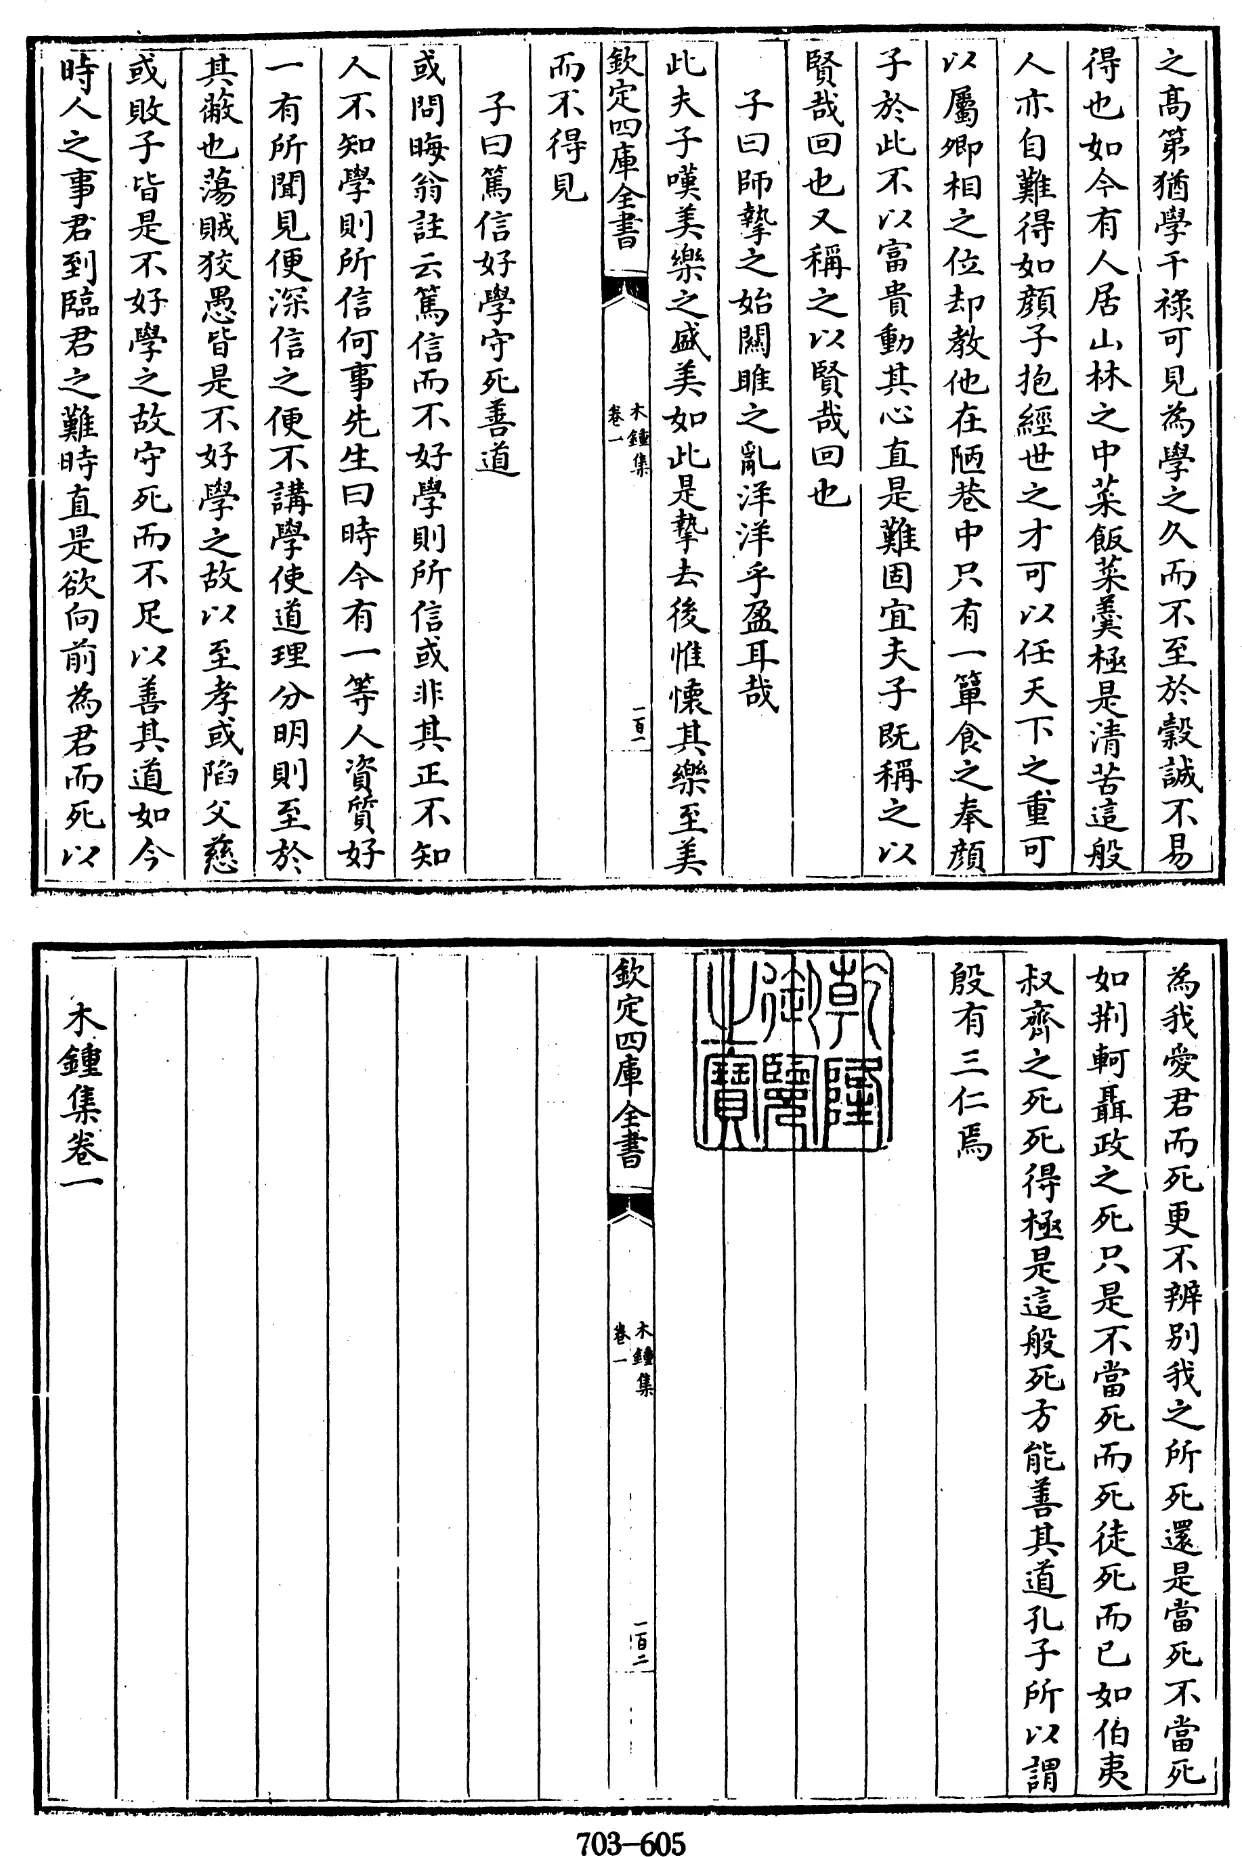 之髙第猶學干祿可見為學之久而不至於穀誠不易
得也如今有人居山林之中菜飯菜羮極是清苦這般
人亦自難得如顔子抱經世之才可以任天下之重可
以屬卿相之位却教他在陋巷中只有一簞食之奉顔
子於此不以富貴動其心直是難固宜夫子既稱之以
賢哉回也又稱之以賢哉回也
子曰師摯之始關雎之亂洋洋乎盈耳哉
此夫子嘆美樂之盛美如此是摯去後惟懷其樂至美
欽定四庫全書
木鍾集
卷一
一百一
而不得見
子曰篤信好學守死善道
或問晦翁註云篤信而不好學則所信或非其正不知
人不知學則所信何事先生曰時今有一等人資質好
一有所聞見便深信之便不講學使道理分明則至於
其蔽也蕩賊狡愚皆是不好學之故以至孝或陷父慈
或敗子皆是不好學之故守死而不足以善其道如今
時人之事君到臨君之難時直是欲向前為君而死以
為我愛君而死更不辨别我之所死還是當死不當死
如荆軻聶政之死只是不當死而死徒死而已如伯夷
叔齊之死死得極是這般死方能善其道孔子所以謂
殷有三仁焉
乾隆御覽之寶
欽定四庫全書
木鍾集
卷一
一百二
木鍾集卷一
703-605